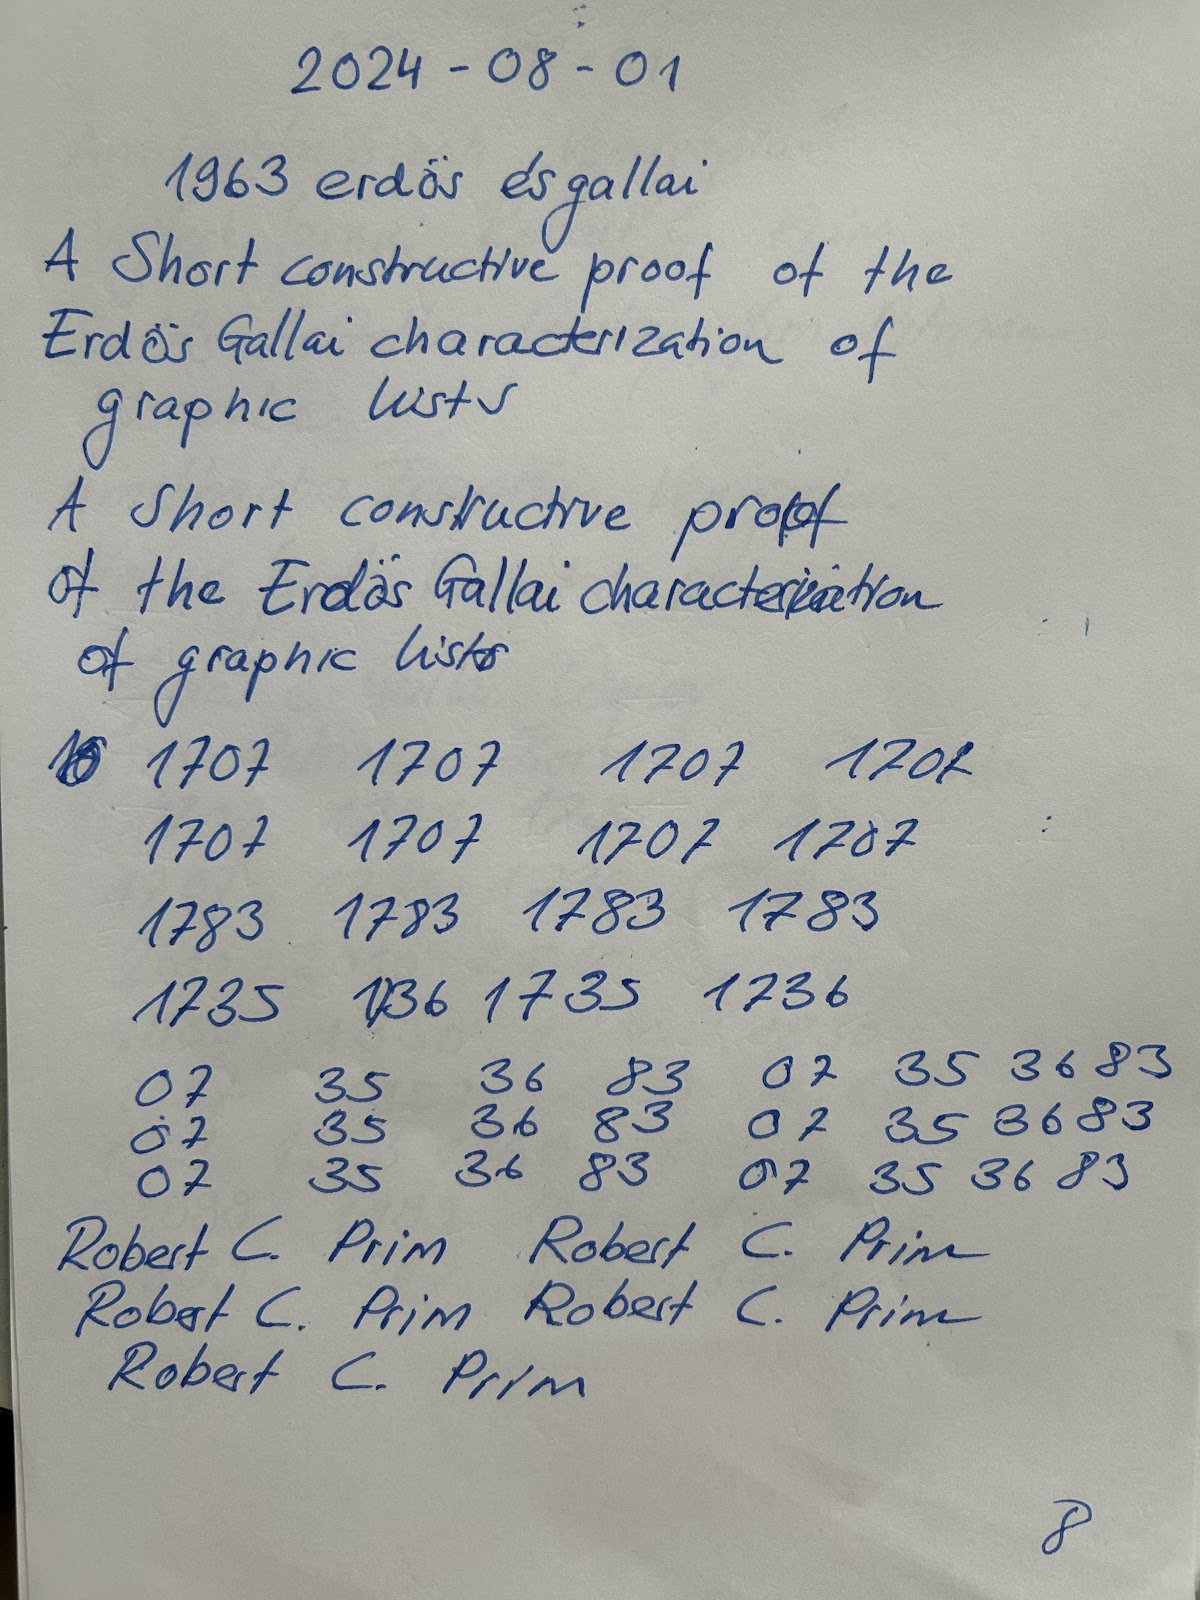 2024 - 08 - 01
1963 erdös és gallai
A Short constructive proof of the
Erdös Gallai characterization of
graphic lists
A short constructive proof
of the Erdös Gallai characterization
of graphic lists
1707 1707 1707 1707
1707 1707 1707 1707
1783 1783 1783 1783
1735 1736 1735 1736
07 35 36 83 07 35 36 83
07 35 36 83 07 35 36 83
07 35 36 83 07 35 36 83
Robert C. Prim Robert C. Prim
Robert C. Prim Robert C. Prim
Robert C. Prim
8